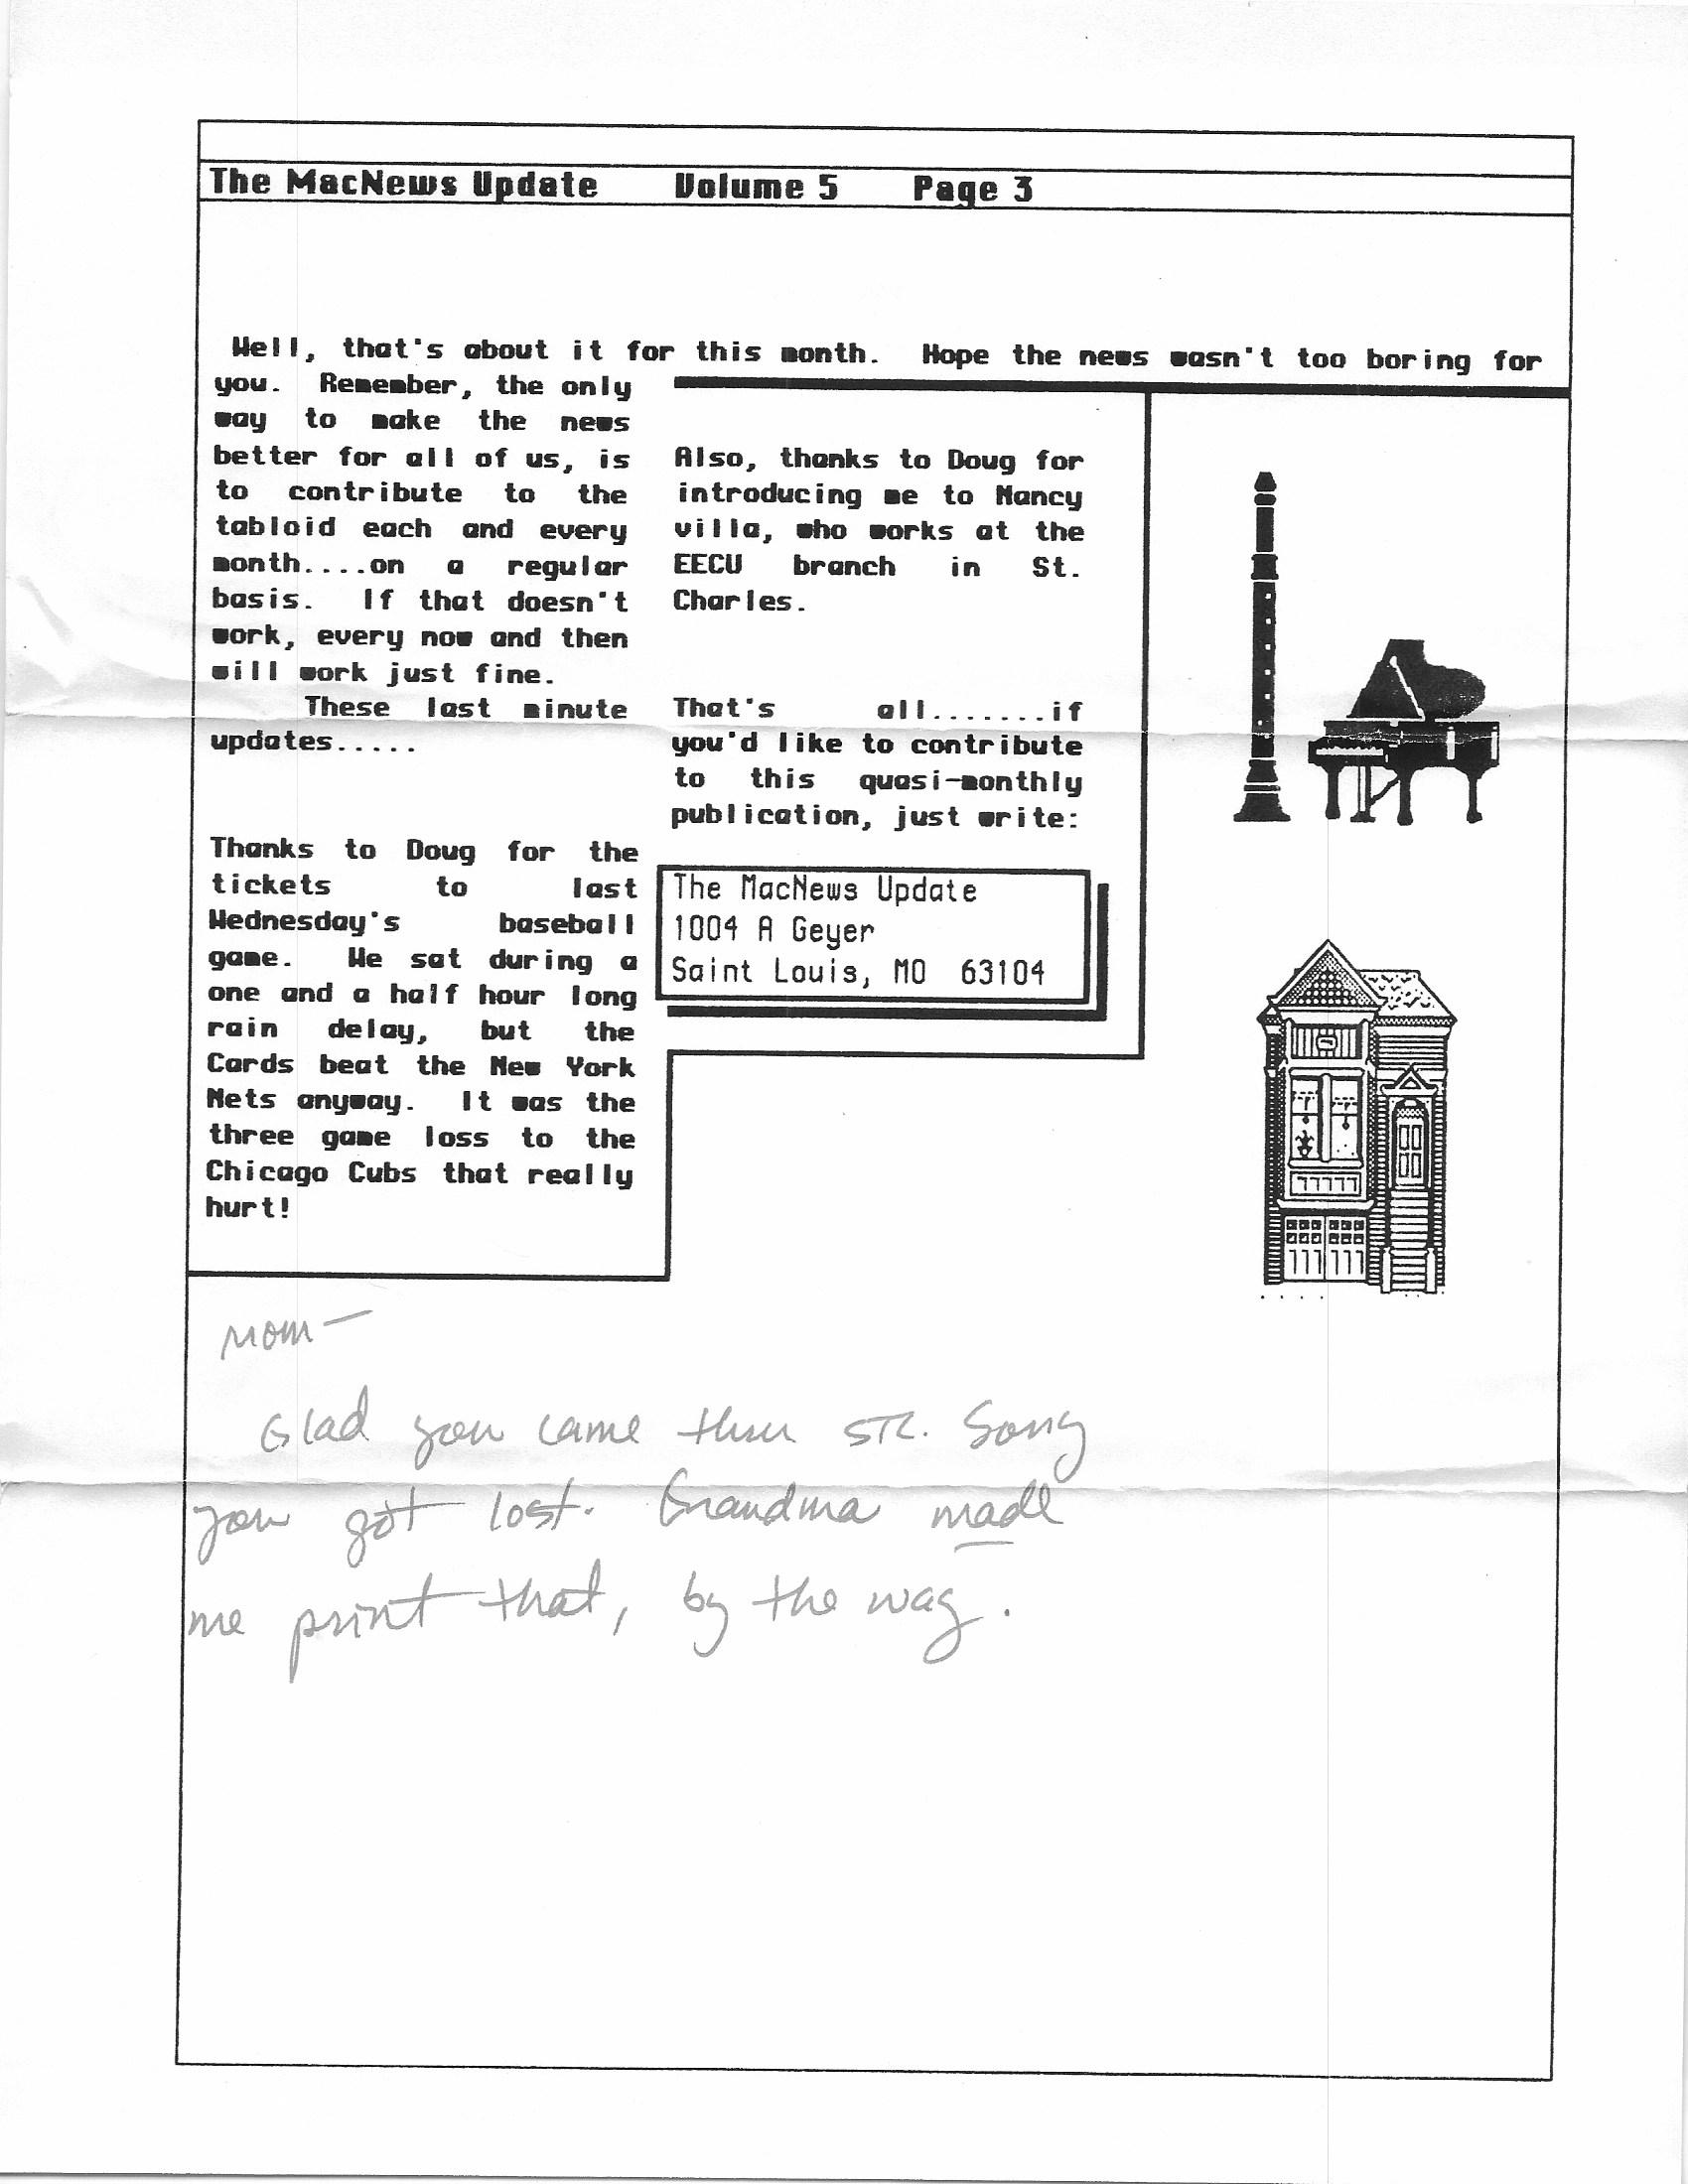 The MacNews Update Volume 5 Page 3
Well, that's about it for this month. Hope the news wasn't too boring for
you. Remember, the only
way to make the news
better for all of us, is
to contribute to the
tabloid each and every
month....on a regular
basis. If that doesn't
work, every now and then
will work just fine.
These last minute
updates.....
Thanks to Doug for the
tickets to last
Wednesday's baseball
game. We sat during a
one and a half hour long
rain delay, but the
Cards beat the New York
Mets anyway. It was the
three game loss to the
Chicago Cubs that really
hurt!
Also, thanks to Doug for
introducing me to Nancy
villa, who works at the
EECU branch in St.
Charles.
That's all.......if
you'd like to contribute
to this quasi-monthly
publication, just write:
The MacNews Update
1004 A Geyer
Saint Louis, MO 63104
Mom-
Glad you came thru STL. Sorry
you got lost. Grandma made
me print that, by the way.